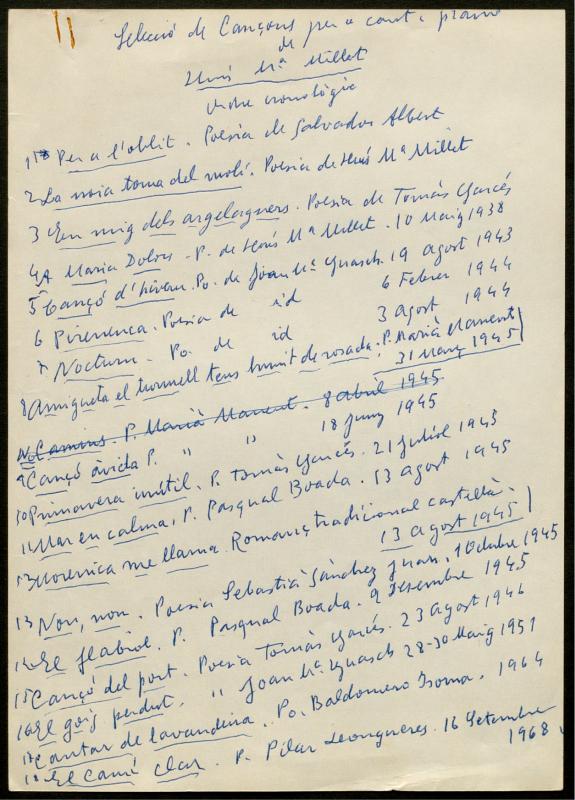 Selecció de Cançons per a cant i piano
de
Lluís Mª Millet
Ordre cronològic
1 Per a l'oblit. Poesia de Salvador Albert
2 La noia torna del molí. Poesia de Lluís Mª Millet
3 En mig dels argelaguers. Poesia de Tomàs Garcés
4 A Maria Dolors - P. de Lluís Mª Millet. 10 Maig 1938
5 Cançó d'hivern. Po. de Joan Mª Guasch. 19 agost 1943
6 Pirenenca. Poesia de id 6 Febrer 1944
7 Nocturn. Po. de id 3 agost 1944
8 Amigueta el turmell tens humit de rosada. P. Marià Manent
31 Març 1945
No Camins. P. Marià Manent. 8 abril 1945
9 Cançó àvida P. " " 18 juny 1945
10 Primavera inútil. P. Tomàs Garcés. 21 juliol 1945
11 Mar en calma, P. Pasqual Boada. 13 agost 1945
12 Morenica me llama. Romanç tradicional castellà.
13 agost 1945
13 Non, non. Poesia Sebastià Sánchez Juan. 1 Octubre 1945
14 El flabiol. P. Pasqual Boada. 9 Desembre 1945
15 Cançó del port. Poesia Tomàs Garcés. 23 agost 1946
16 El goig perdut. " Joan Mª Guasch 28-30 Maig 1951
17 Cantar de lavandeira. Po. Baldomero Isorna. 1964
18 El camí clar. P. Pilar Leongueres. 16 Setembre
1968